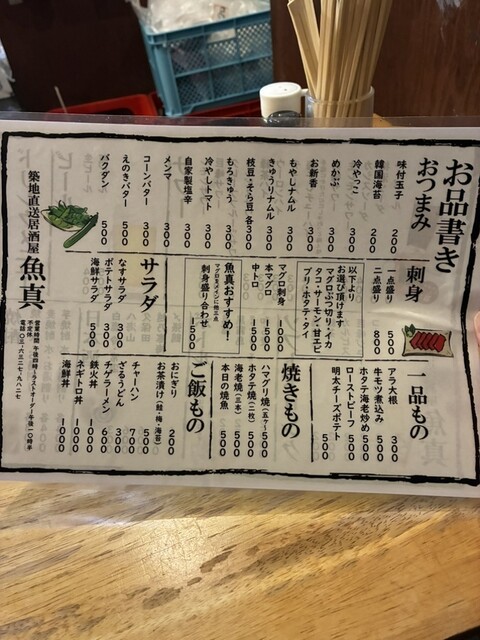 お品書き
おつまみ
味付玉子 200
韓国海苔 200
冷やっこ 300
めかぶ 300
お新香 300
もやしナムル 300
きゅうりナムル 300
枝豆・そら豆 各300
もろきゅう 300
冷やしトマト 300
自家製塩辛 300
メンマ 300
コーンバター 300
えのきバター 500
バクダン 500
刺身
一点盛り 500
二点盛り 800
以下より
お選び頂けます
マグロぶつ切り・イカ
タコ・サーモン・甘エビ
ブリ・ホタテ・タイ
マグロ刺身 1000
本マグロ 1500
中トロ 1500
魚真おすすめ!
マグロをメインに他三点
刺身盛り合わせ
1500
サラダ
なすサラダ 300
ポテトサラダ 300
海鮮サラダ 500
一品もの
アラ大根 300
牛モツ煮込み 500
ホタテ海老炒め 500
ローストビーフ 500
明太チーズポテト 500
焼きもの
ハマグリ焼 500
ホタテ焼(二枚) 500
海老焼(三本) 500
本日の焼魚 500
ご飯もの
おにぎり 200
お茶漬け(鮭・梅・海苔) 500
チャーハン 700
ざるうどん 300
チゲラーメン 600
鉄火丼 1000
ネギトロ丼 1000
海鮮丼 1000
築地直送居酒屋
魚真
営業時間 午後四時〜ラストオーダー午後一〇時半
不定休
電話〇三‐六三二七‐九八二七